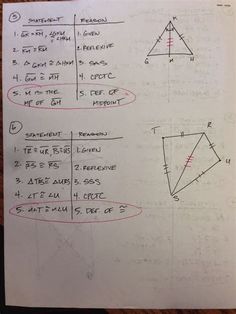 5
STATEMENT REASON
1. GK ≅ KH, ∠GKM ≅ ∠HKM 1. GIVEN
2. KM ≅ KM 2. REFLEXIVE
3. △GKM ≅ △HKM 3. SAS
4. GM ≅ MH 4. CPCTC
5. M IS THE 5. DEF. OF
MP OF GH MIDPOINT
K
G M H
6
STATEMENT REASON
1. TR ≅ UR, TS ≅ US 1. GIVEN
2. RS ≅ RS 2. REFLEXIVE
3. △TRS ≅ △URS 3. SSS
4. ∠T ≅ ∠U 4. CPCTC
5. m∠T = m∠U 5. DEF. OF ≅
T R
U
S